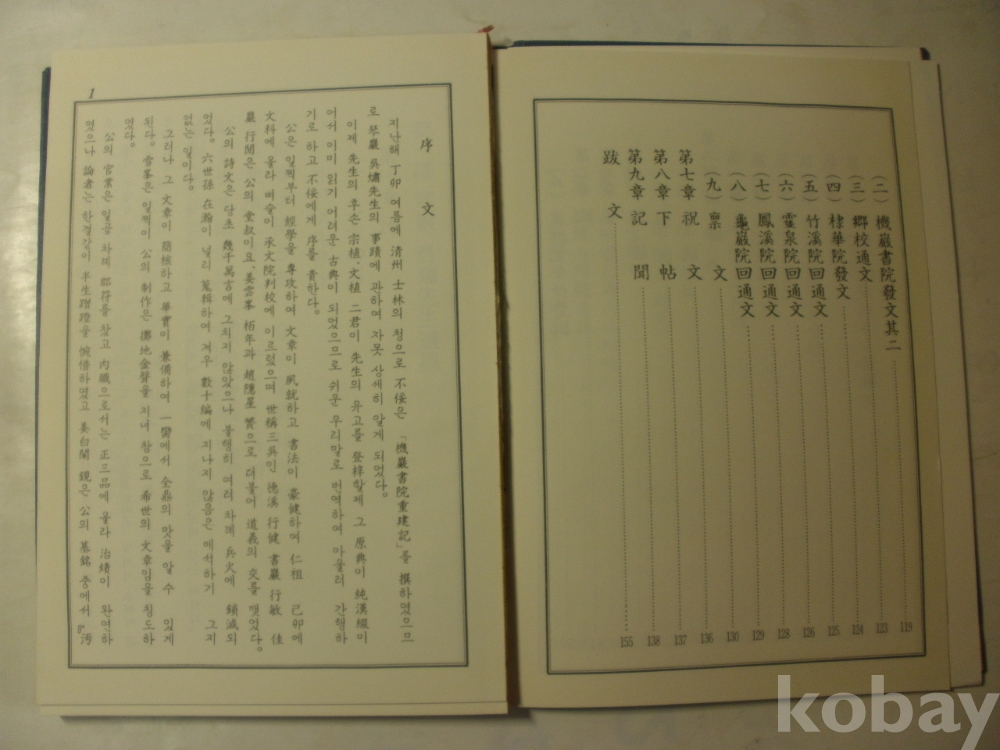 (二) 機巖書院發文其二 119
(三) 鄕校通文 123
(四) 棣華院發文 124
(五) 竹溪院回通文 125
(六) 靈泉院回通文 126
(七) 鳳溪院回通文 128
(八) 龜巖院回通文 129
(九) 稟文 130
第七章 祝文 136
第八章 下帖 137
第九章 記聞 138
跋文 155
1
序文
지난해 丁卯 여름에 淸州 士林의 청으로 不佞은 「機巖書院重建記」를 撰하였으므
로 琴巖 吳㙉先生의 事蹟에 관하여 자못 상세히 알게 되었다.
이제 先生의 후손 宗植、文植 二君이 先生의 유고를 登梓할제 그 原典이 純漢綴이
어서 이미 읽기 어려운 古典이 되었으므로 쉬운 우리말로 번역하여 아울러 간행하
기로 하고 不佞에게 序를 責한다.
公은 일찍부터 經學을 專攻하여 文章이 夙就하고 書法이 豪健하여 仁祖 己卯에
文科에 올라 벼슬이 承文院判校에 이르렀으며 世稱三吳인 德溪 行健 書巖 行敏 佳
巖 行閒은 公의 堂叔이요、姜雪峯 栢年과 趙隱星 贇으로 더불어 道義의 交를 맺었다。
公의 詩文은 당초 幾千萬言에 그치지 않았으나 불행히 여러 차례 兵火에 鎖滅되
었다。六世孫 在瀚이 널리 蒐輯하여 겨우 數十編에 지나지 않음은 애석하기 그지
없는 일이다。
그러나 그 文章이 簡核하고 華實이 兼備하여 一臠에서 全鼎의 맛을 알 수 있게
된다。雪峯은 일찍이 公의 制作은 擲地金聲을 지녀 참으로 希世의 文章임을 칭도하
였다。
公의 官業은 일곱 차례 郡符를 찼고 內職으로서는 正三品에 올라 治績이 완연하
였으나 論者는 한결같이 半生蹭蹬을 惋惜하였고 姜白閣 鋧은 公의 墓銘 중에서 「汚